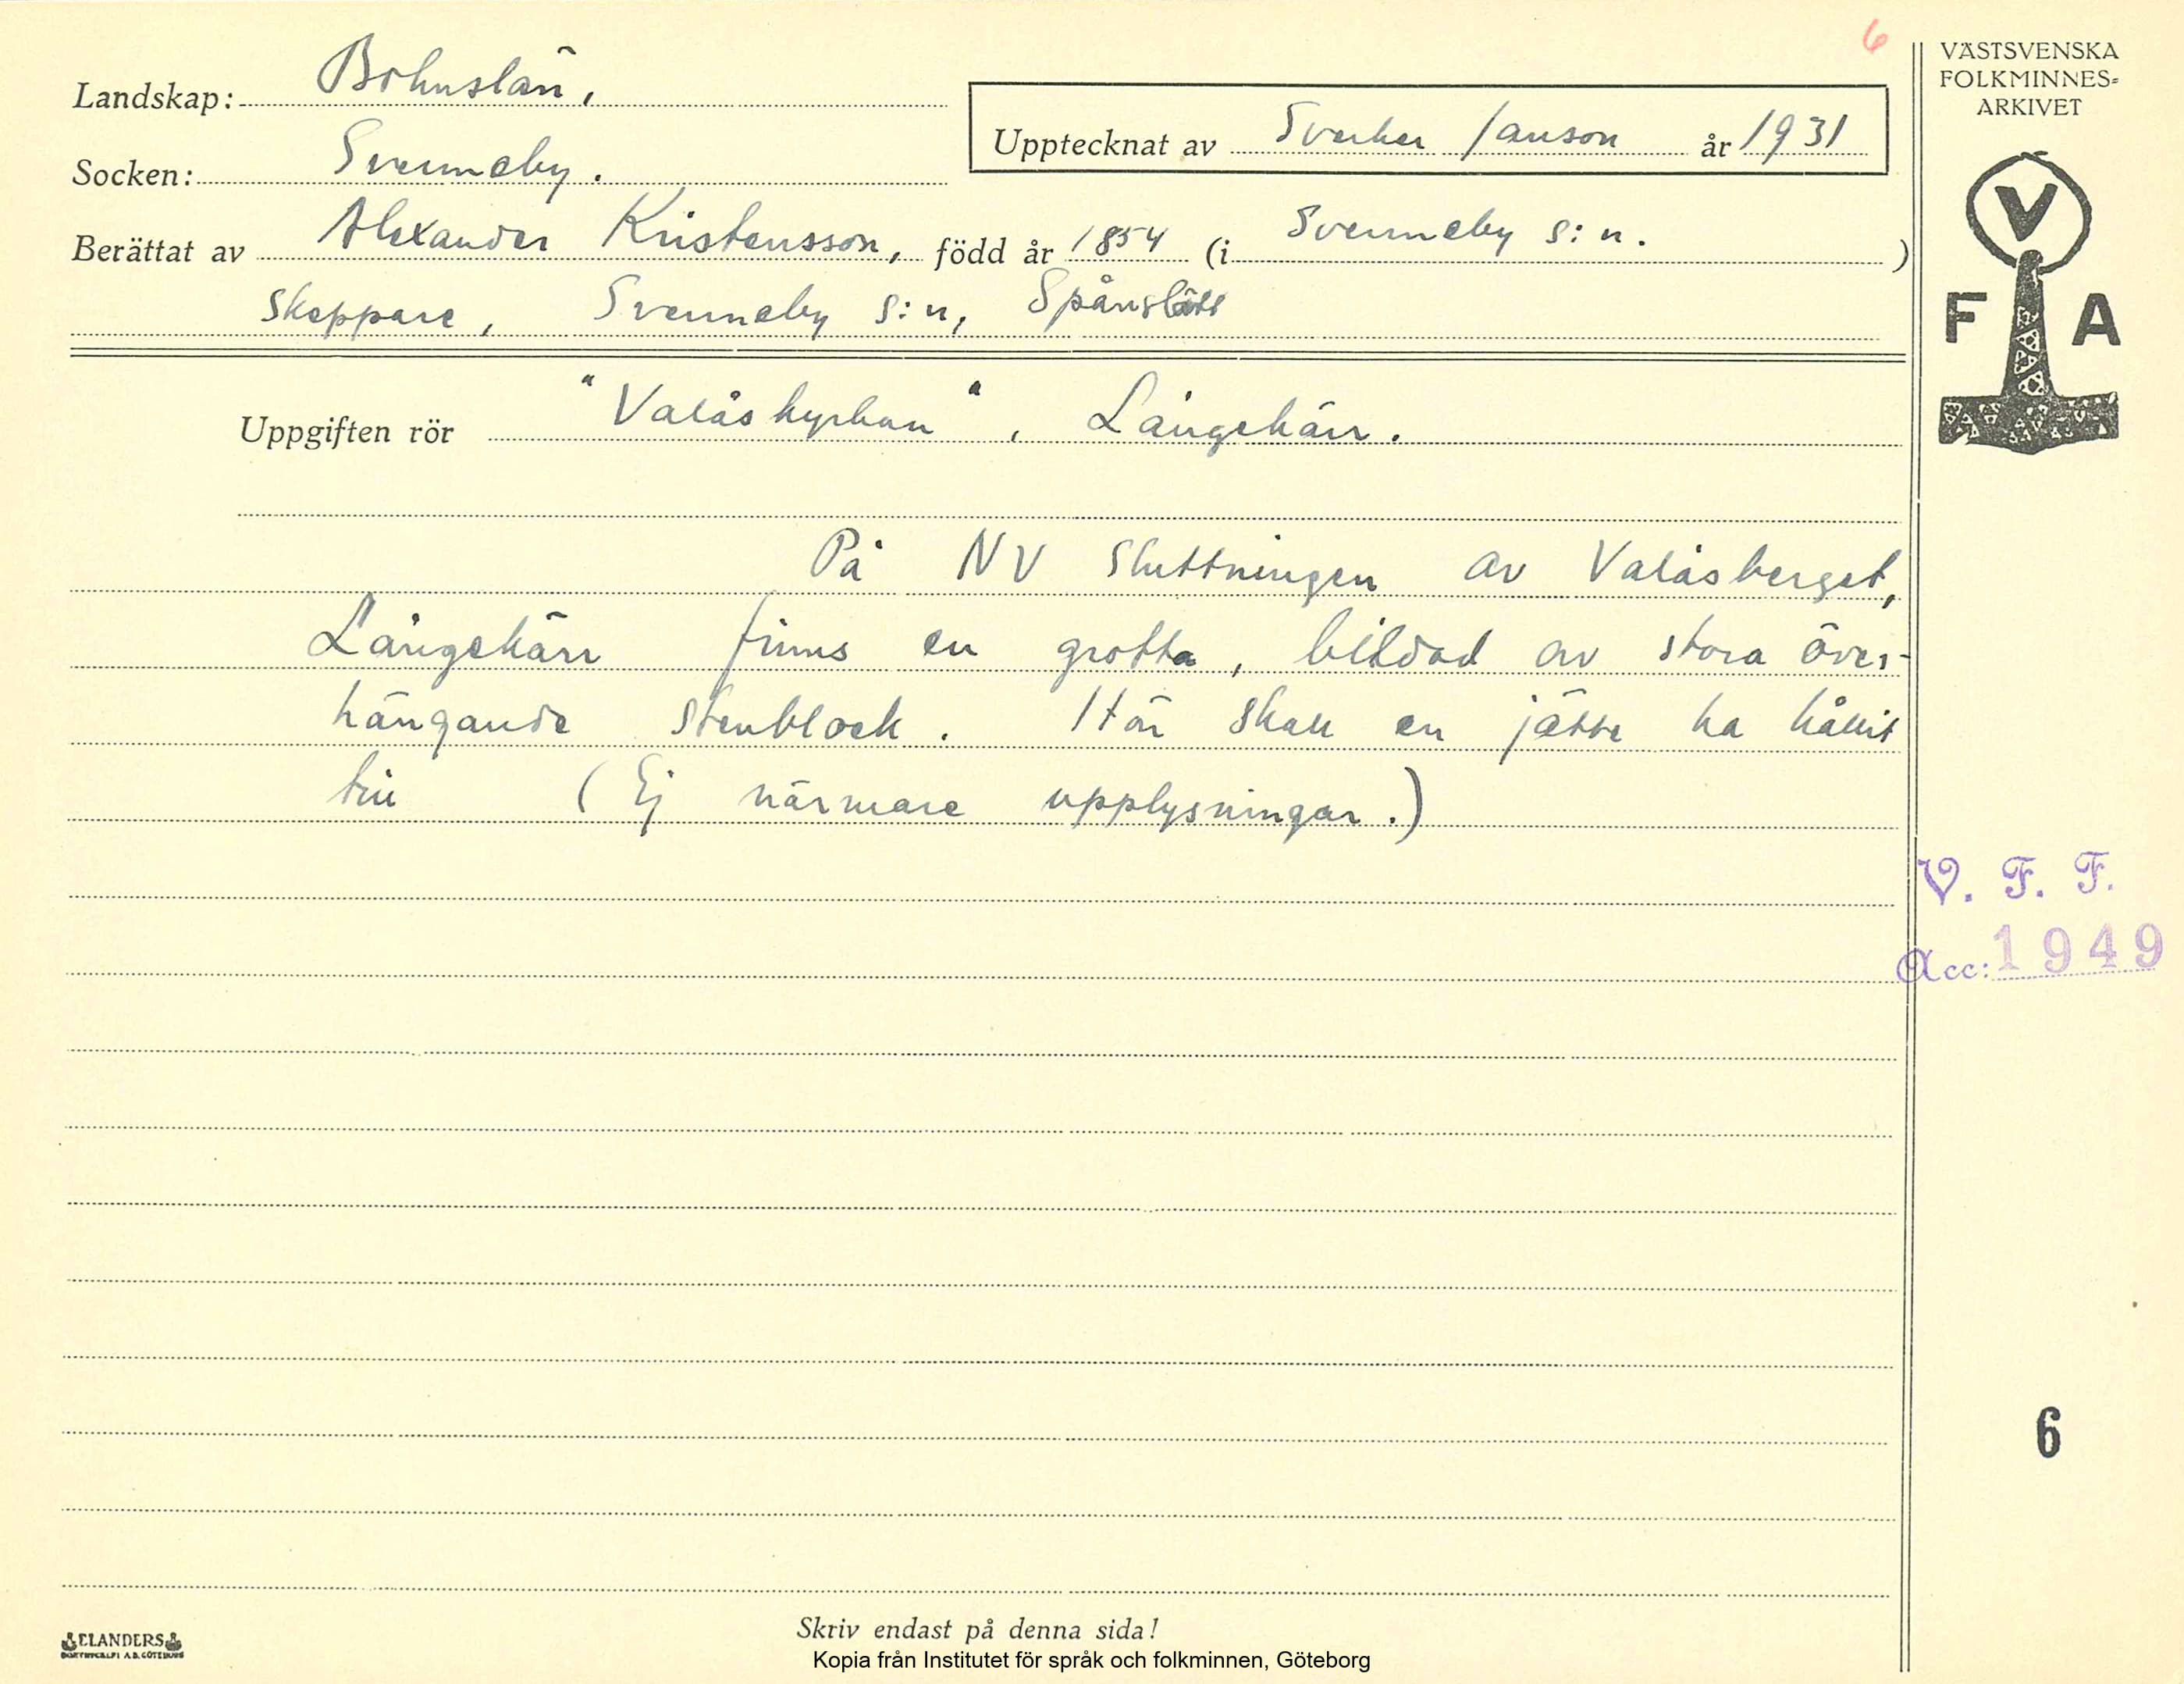 6
Landskap: Bohuslän,
Socken: Svenneby.
Upptecknat av Sverker Janson år 1931
Berättat av Alexander Kristensson, född år 1854 (i Svenneby s:n.)
skeppare, Svenneby s:n, Spånslätt
Uppgiften rör "Valåskyrkan", Långekärr.
På NV sluttningen av Valåsberget,
Långekärr finns en grotta, bildad av stora över-
hängande stenblock. Här skall en jätte ha hållit
till (Ej närmare upplysningar.)
VÄSTSVENSKA
FOLKMINNES=
ARKIVET
V
F A
V. F. F.
Acc: 1949
6
Skriv endast på denna sida!
ELANDERS
Kopia från Institutet för språk och folkminnen, Göteborg